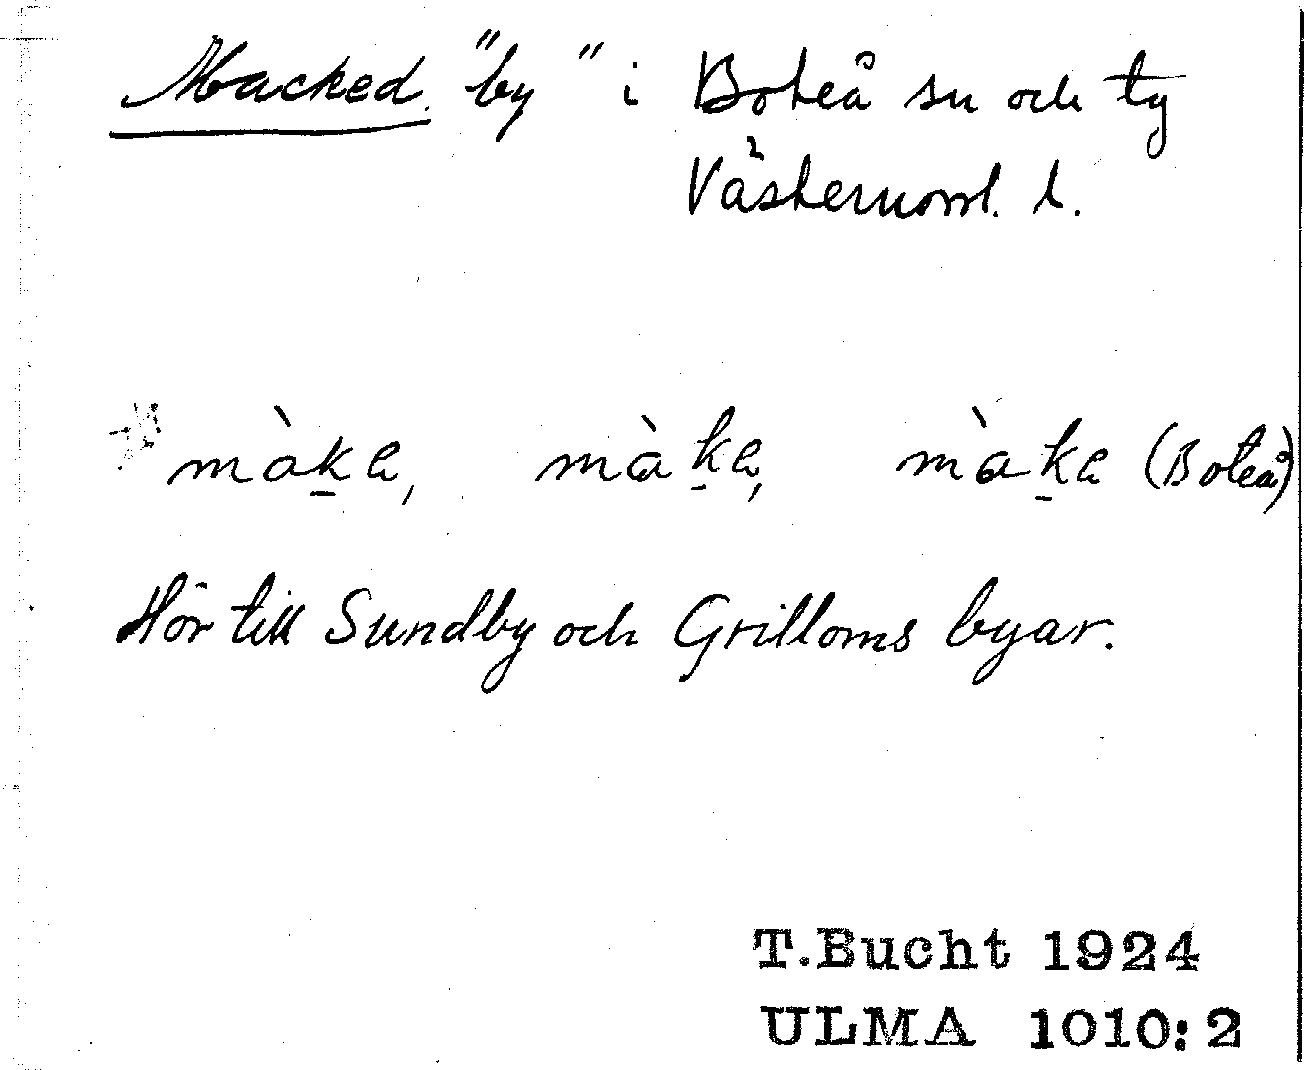 Macked "by" i Boteå sn och tg
Västernorrl. l.
màk̠e, màk̠e, màk̠e (Boteå)
Hör till Sundby och Grilloms byar.
T.Bucht 1924
ULMA 1010:2